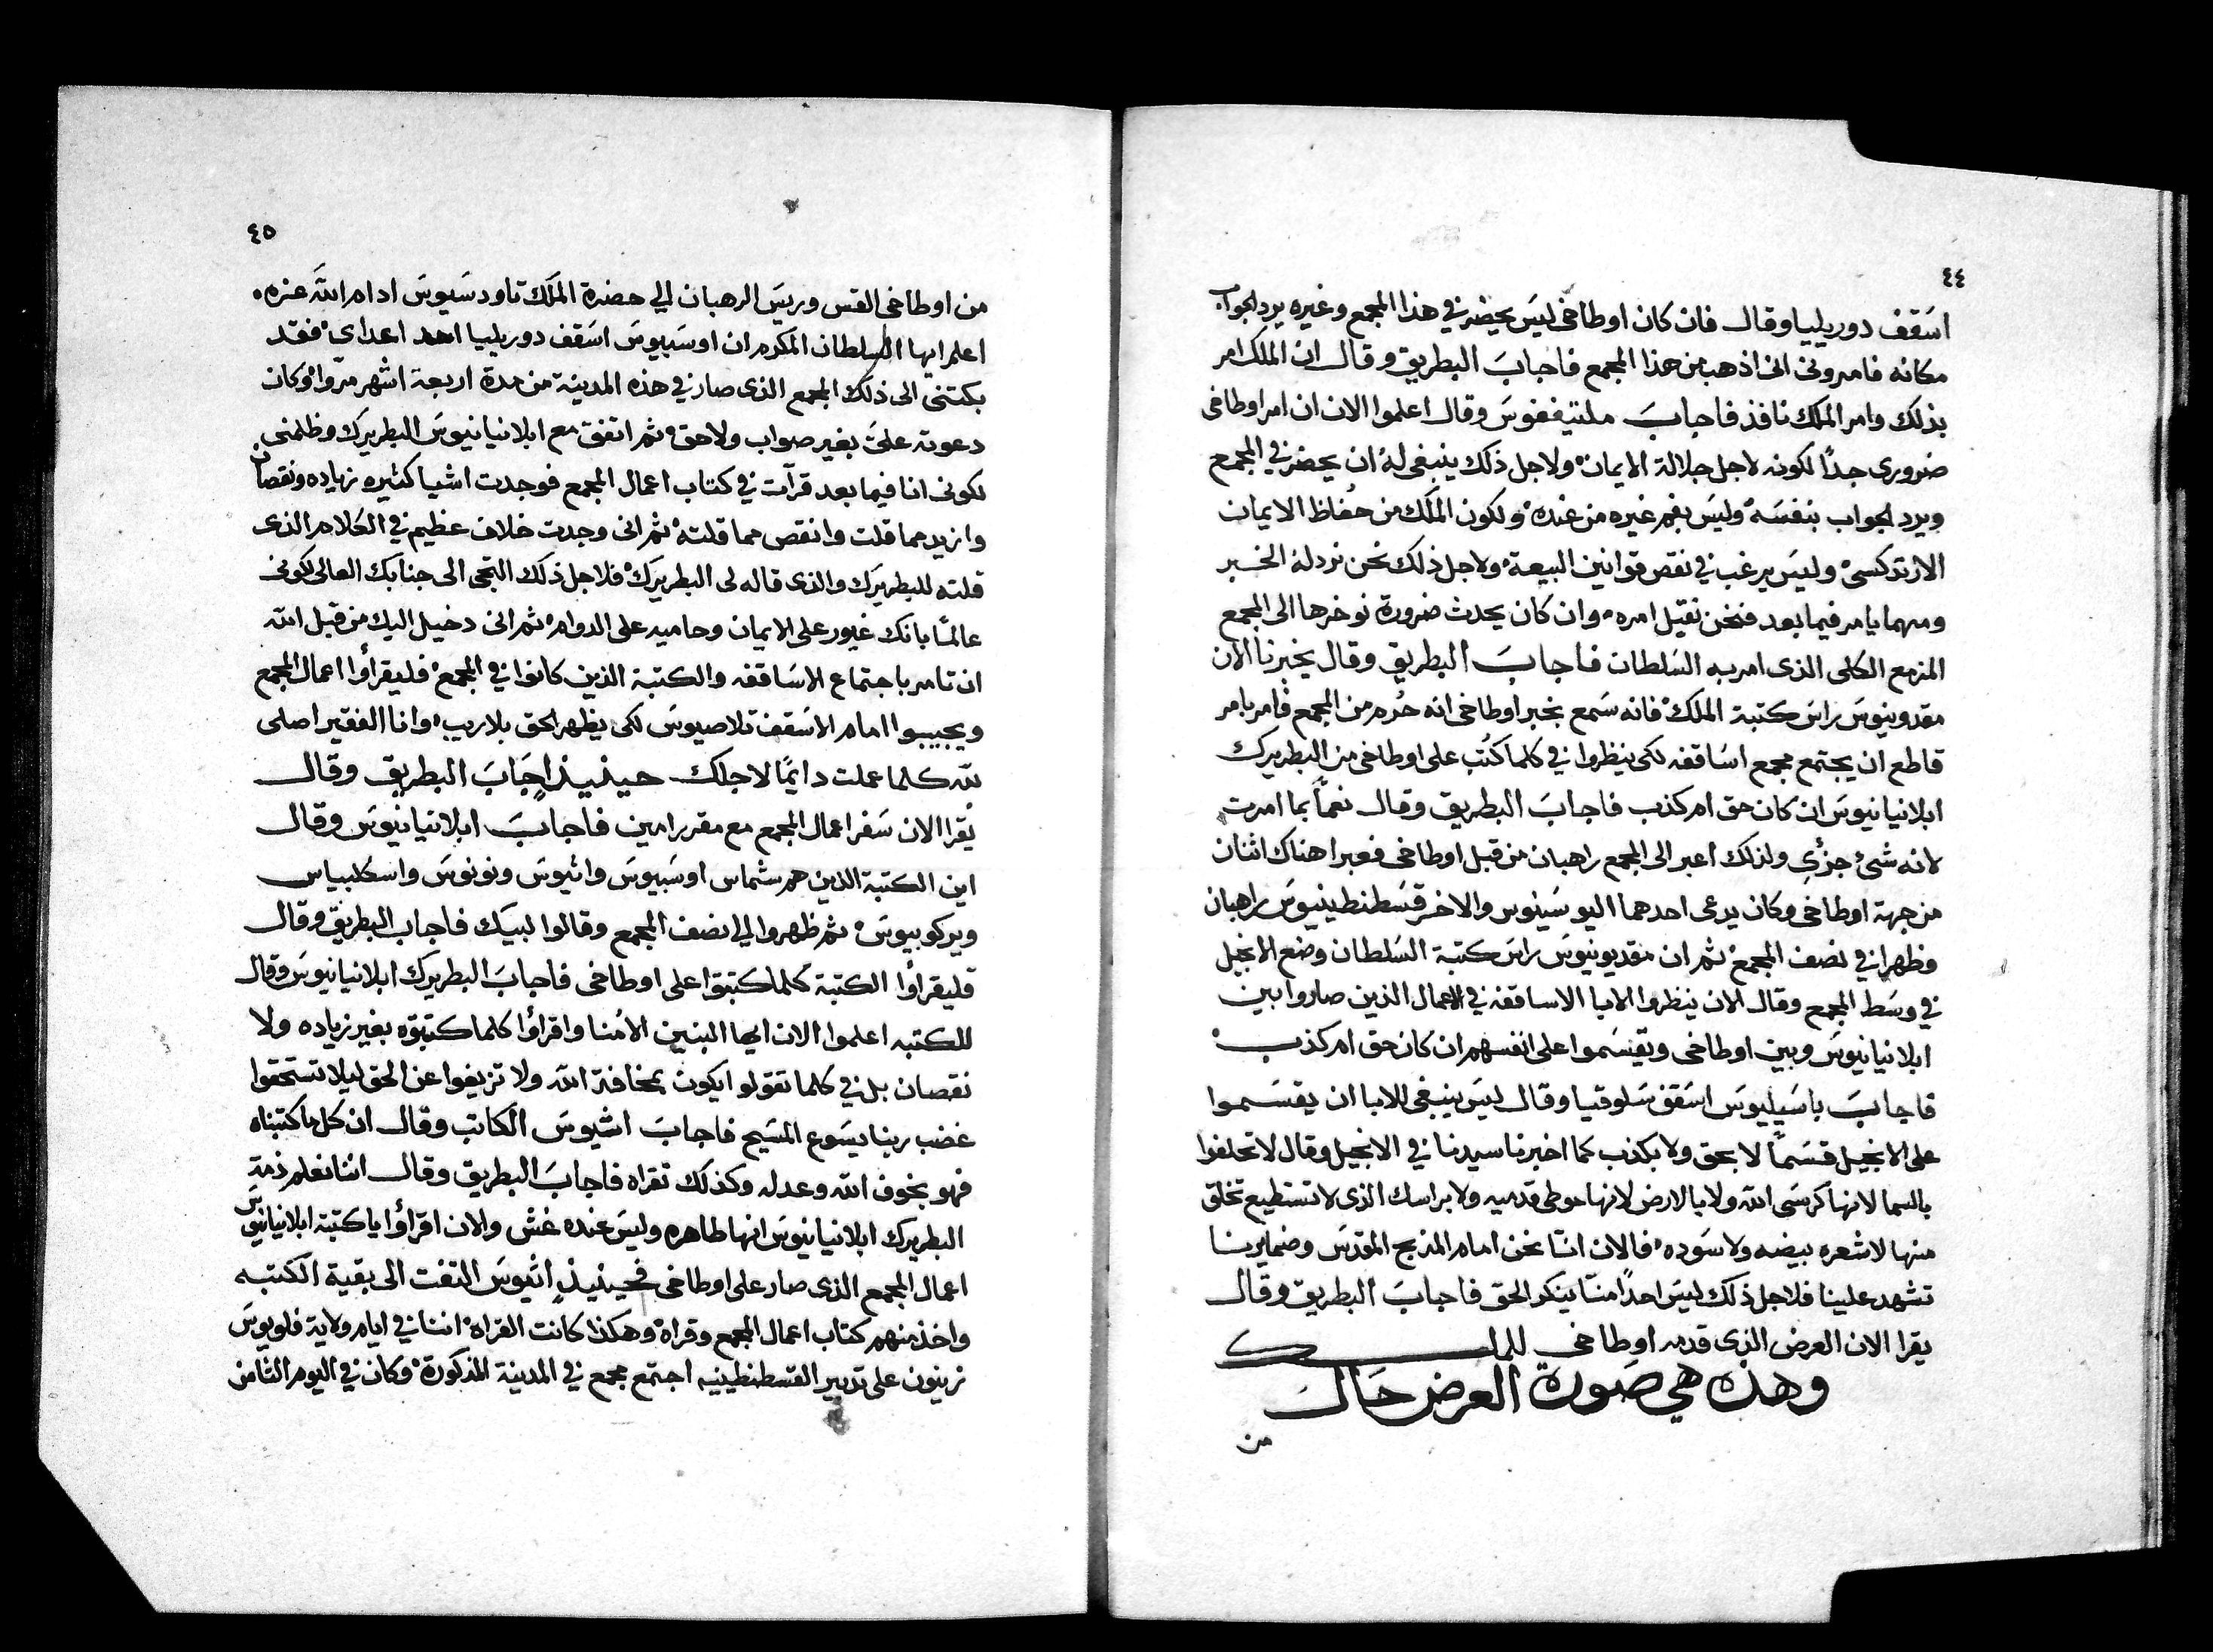 ٤٤
اسقف دوريليا وقال فان كان اوطاخى ليس يحضر في هذا المجمع وغيره يرد الجواب
مكانه فامرونى انى اذهب من هذا المجمع فاجاب البطريق وقال ان الملك امر
بذلك وامر الملك نافذ فاجاب ملتيففوس وقال اعلموا الان ان امر اوطاخى
ضرورى جدًا لكونه لاجل جلالة الايمان ولاجل ذلك ينبغى له ان يحضر في المجمع
ويرد الجواب بنفسه وليس بفم غيره من عنده ولكون الملك من حفاظ الايمان
الارتدكسى وليس يرغب في نقص قوانين البيعة ولاجل ذلك نحن نرد له الخبر
ومهما يامر فيما بعد فنحن نقبل امره وان كان يحدث ضرورة نوخرها الى المجمع
المزمع الكلى الذى امر به السلطان فاجاب البطريق وقال يخبرنا الان
مقدونيوس راس كتبة الملك فانه سمع بخبر اوطاخى انه حُرم من المجمع فامر بامر
قاطع ان يجتمع مجمع اساقفه لكى ينظروا في كلما كُتب على اوطاخى من البطريرك
ابلانيانيوس ان كان حق ام كذب فاجاب البطريق وقال نعمًا بما امرت
لانه شئ جزءي ولذلك اعبر الى المجمع راهبان من قبل اوطاخى فعبرا هناك اثنان
من جهة اوطاخى وكان يدعى احدهما اليوسينوس والاخر قسطنطينيوس راهبان
وظهرا في نصف المجمع ثم ان مقديونيوس راس كتبة السلطان وضع الانجيل
في وسط المجمع وقال الان ينظروا الابا الاساقفه في الاعمال الذين صاروا بين
ابلانيانيوس وبين اوطاخى ويقسموا على انفسهم ان كان حق ام كذب
فاجاب باسيليوس اسقف سلوقيا وقال ليس ينبغى للابا ان يقسموا
على الانجيل قسمًا لا بحق ولا بكذب كما اخبرنا سيدنا في الانجيل وقال لا تحلفوا
بالسما لانها كرسى الله ولا بالارض لانها موطى قدميه ولا براسك الذى لا تستطيع تخلق
منها لا شعره بيضه ولا سوده فالان اننا نحن امام المذبح المقدس وضمايرنا
تشهد علينا فلاجل ذلك ليس احدًا منا ينكر الحق فاجاب البطريق وقال
يقرا الان العرض الذى قدمه اوطاخى للملك
وهذه هي صورة العرض حال
من
٤٥
من اوطاخى القس وريس الرهبان الي حضرة الملك تاودسيوس ادام الله عزه
اعلم ايها السلطان المكرم ان اوسبيوس اسقف دوريليا احد اعداى فقد
بكتنى الى ذلك المجمع الذى صار في هذه المدينة من مدة اربعة اشهر مرّوا وكان
دعوته علىَّ بغير صواب ولا حق ثم اتفق مع ابلانيانيوس البطريرك وظلمنى
لكونى انا فيما بعد قرآت في كتاب اعمال المجمع فوجدت اشيا كثيره زياده ونقصان
وازيد مما قلت وانقص مما قلته ثم انى وجدت خلاف عظيم في الكلام الذى
قلته للبطريرك والذى قاله لى البطريرك فلاجل ذلك التجى الى جنابك العالى لكونى
عالمًا بانك غيور على الايمان وحاميه على الدوام ثم انى دخيل اليك من قبل الله
ان تامر باجتماع الاساقفه والكتبة الذين كانوا في المجمع فليقراؤا اعمال المجمع
ويجيبوا امام الاسقف تلاصيوس لكى يظهر الحق بلا ريب وانا الفقير اصلى
لله كلما عملت دايمًا لاجلك حينيذٍ اجاب البطريق وقال
يُقرا الان سفر اعمال المجمع مع مقرر امين فاجاب ابلانيانيوس وقال
اين الكتبة الذين هم شماس اوسبيوس واتيوس ونونوس واسكلبياس
وبركوبيوس ثم ظهروا الي نصف المجمع وقالوا لبيك فاجاب البطريق وقال
فليقراوا الكتبة كلما كتبتوا على اوطاخى فاجاب البطريرك ابلانيانيوس وقال
للكتبه اعلموا الان ايها البنين الاُمنا واقراؤا كلما كتبتوه بغير زياده ولا
نقصان بل في كلما تقولوا يكون بمخافة الله ولا تزيغوا عن الحق ليلا تستحقوا
غضب ربنا يسوع المسيح فاجاب اشيوس الكاتب وقال ان كل ما كتبناه
فهو بخوف الله وعدله وكذلك نقراه فاجاب البطريق وقال اننا نعلم ذمة
البطريرك ابلانيانيوس انها طاهره وليس عنده غش والان اقراؤا يا كتبة ابلانيانيوس
اعمال المجمع الذى صار على اوطاخى فحينيذٍ اتيوس التفت الى بقية الكتبه
واخذ منهم كتاب اعمال المجمع وقراه وهكذا كانت القراه اننا في ايام ولاية فلوبوس
زينون على تدبير القسطنطينيه اجتمع مجمع في المدينة المذكورة وكان في اليوم الثامن